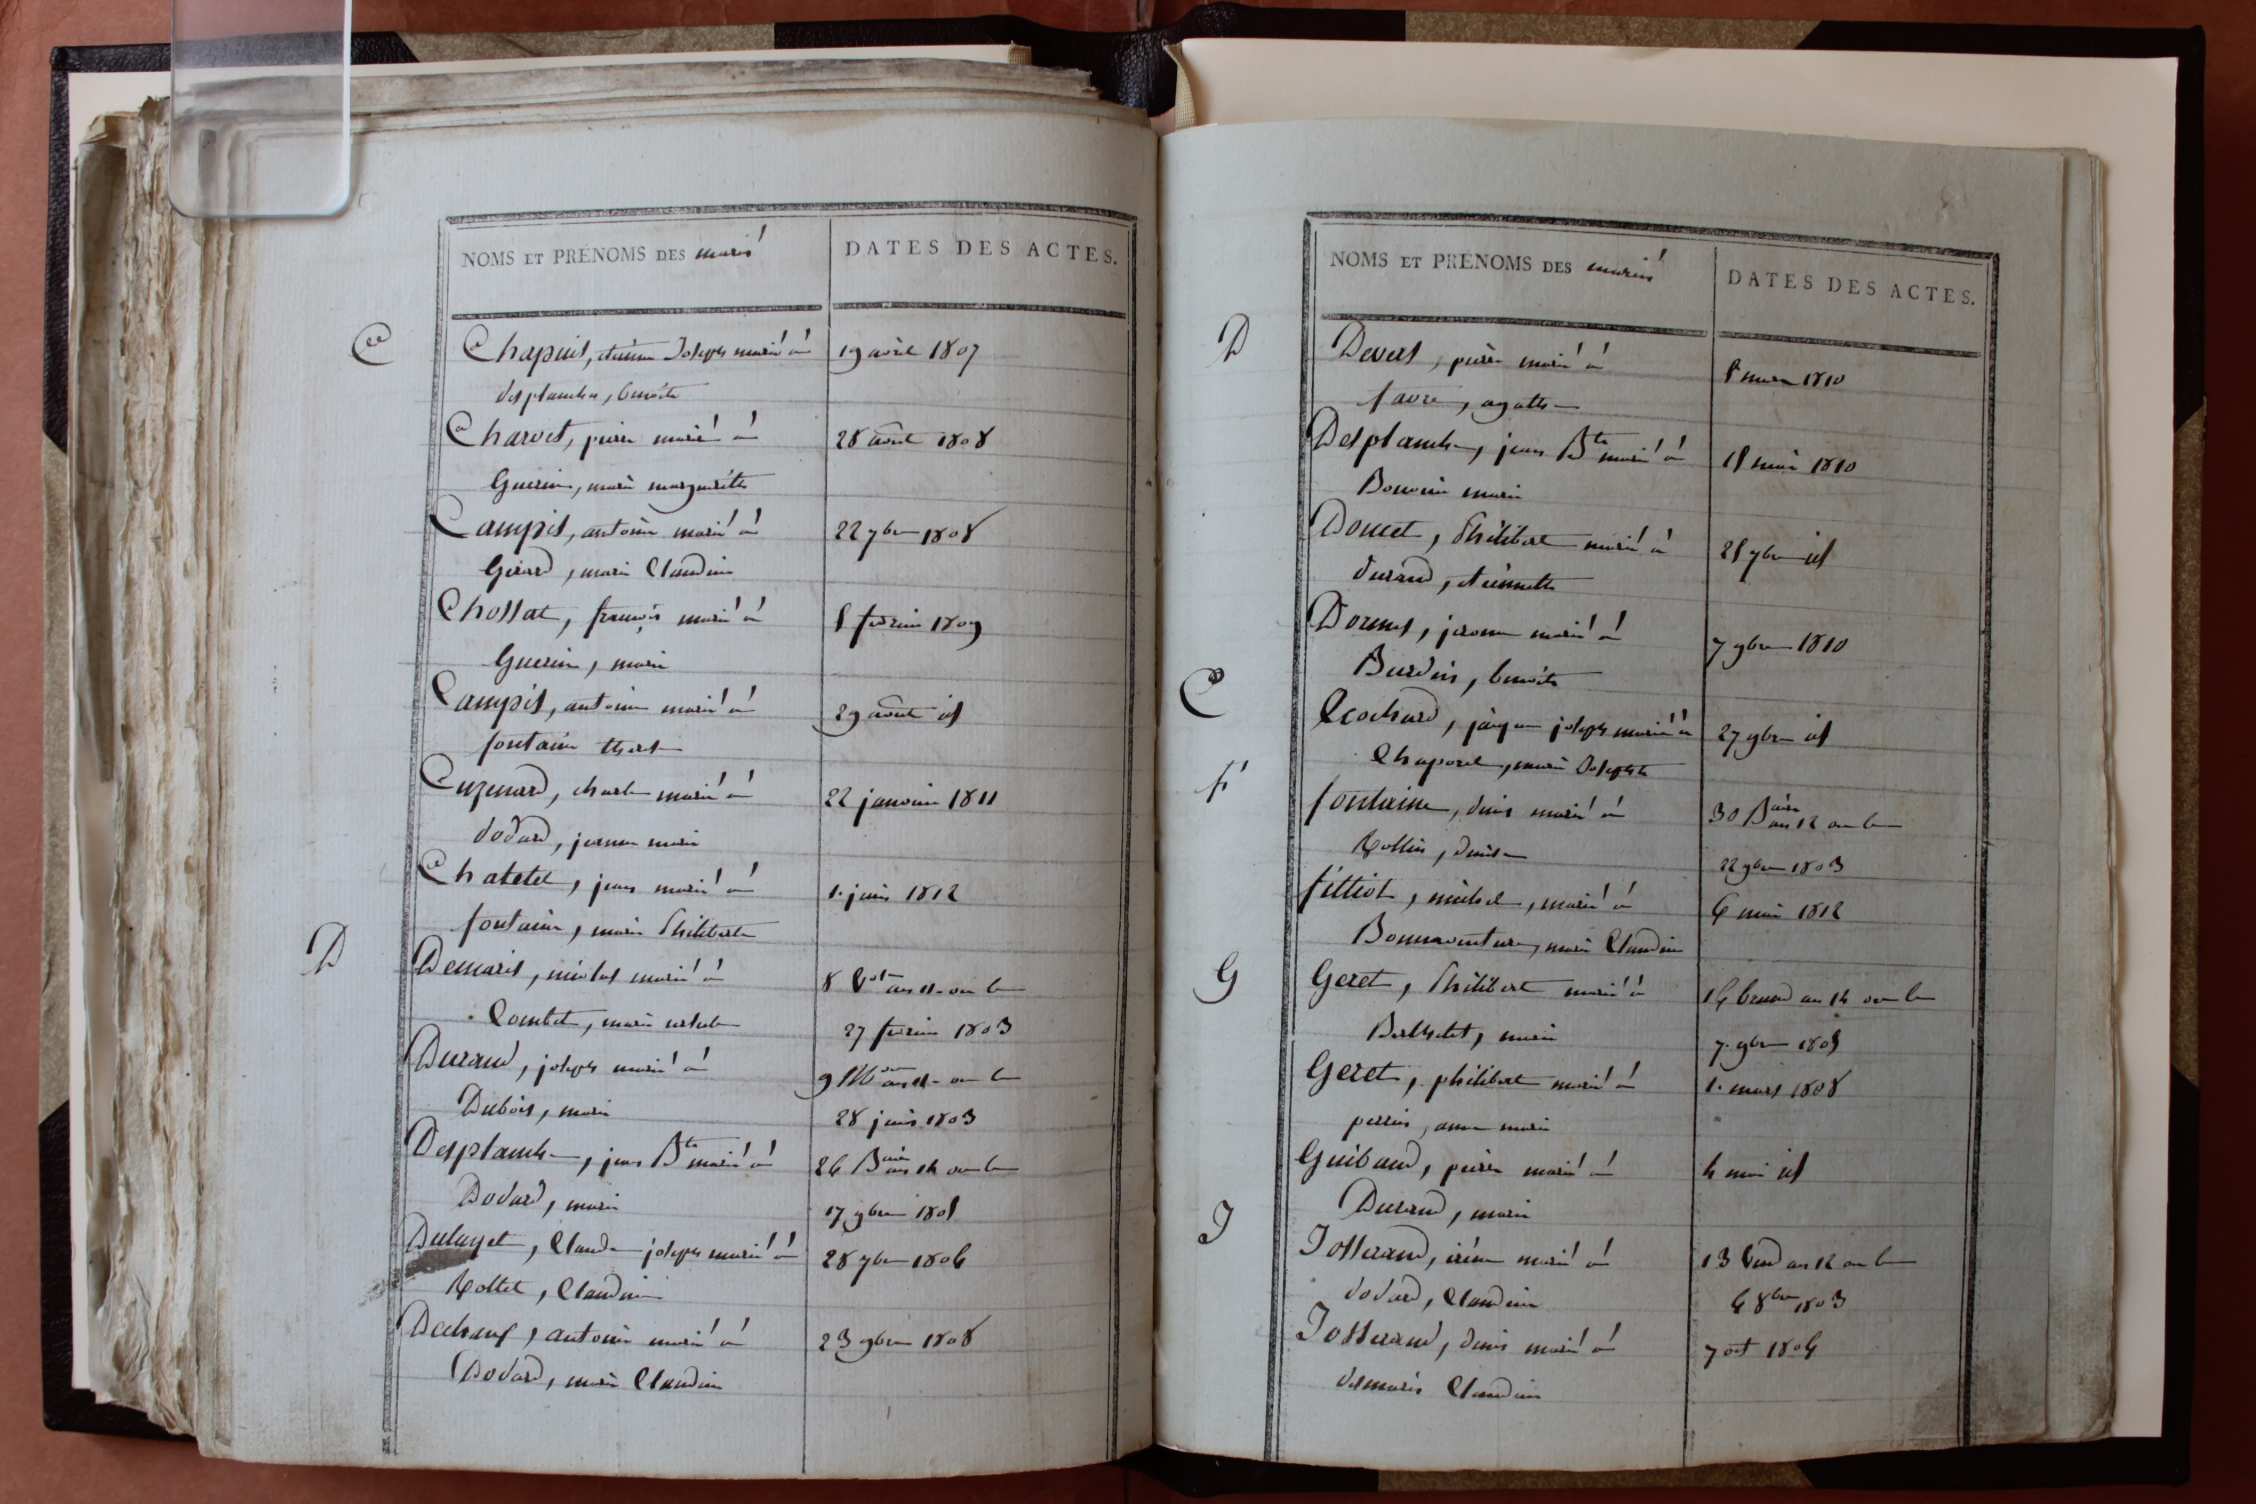 NOMS ET PRÉNOMS DES mariés
DATES DES ACTES.
C
Chapuis, étienne Joseph marié à
19 avril 1807
desplanches, benoite
Charvet, pierre marié à
28 avril 1808
Guerin, marie margueritte
Campis, antoine marié à
22 7bre 1808
Girard, marie Claudine
Chossat, françois marié à
8 fevrier 1809
Guerin, marie
Campis, antoine marié à
29 août id
fontaine
Cuzenard, charle marié à
22 janvier 1811
dodard, jeanne marie
Chatelet, jean marié à
1. juin 1812
fontaine, marie Philiberte
D
Demaris, nicolas marié à
8 an 11 ou le
Combet, marie
27 fevrier 1803
Durand, joseph marié à
9 an 11 ou le
Dubois, marie
28 juin 1803
Desplanche, jean Bte marié à
26 Baire an 14 ou le
Dodard, marie
17 9bre 1805
Dulayet, Claude joseph marié à
28 7bre 1806
Rollet, Claudine
Dechauf, antoine marié à
23 9bre 1808
Dodard, marie Claudine
NOMS ET PRÉNOMS DES mariés
DATES DES ACTES.
D
Devers, pierre marié à
1810
favre, agathe
Desplanche, jean Bte marié à
mai 1810
marie
Doucet, Philibert marié à
25 7bre id
durand, étiennette
Dormes, jerome marié à
7 9bre 1810
Burdin, benoite
E
Ecochard, jacque joseph marié à
27 9bre id
marie Josephte
F
fontaine, denis marié à
30 Baire an 12 ou le
Rollin, denise
22 9bre 1803
filliot, michel, marié à
6 mai 1812
Bonnaventure, marie Claudine
G
Geret, Philibert marié à
16 brum an 14 ou le
Berthelet, marie
7. 9bre 1805
Geret, philibert marié à
1. mars 1808
perrin, anne marie
Guibaud, pierre marié à
4 mai id
Durand, marie
J
Josserand, irénée marié à
13 Vend an 12 ou le
dodard, Claudine
6 8bre 1803
Josserand, denis marié à
7 oct 1806
desmaris Claudine